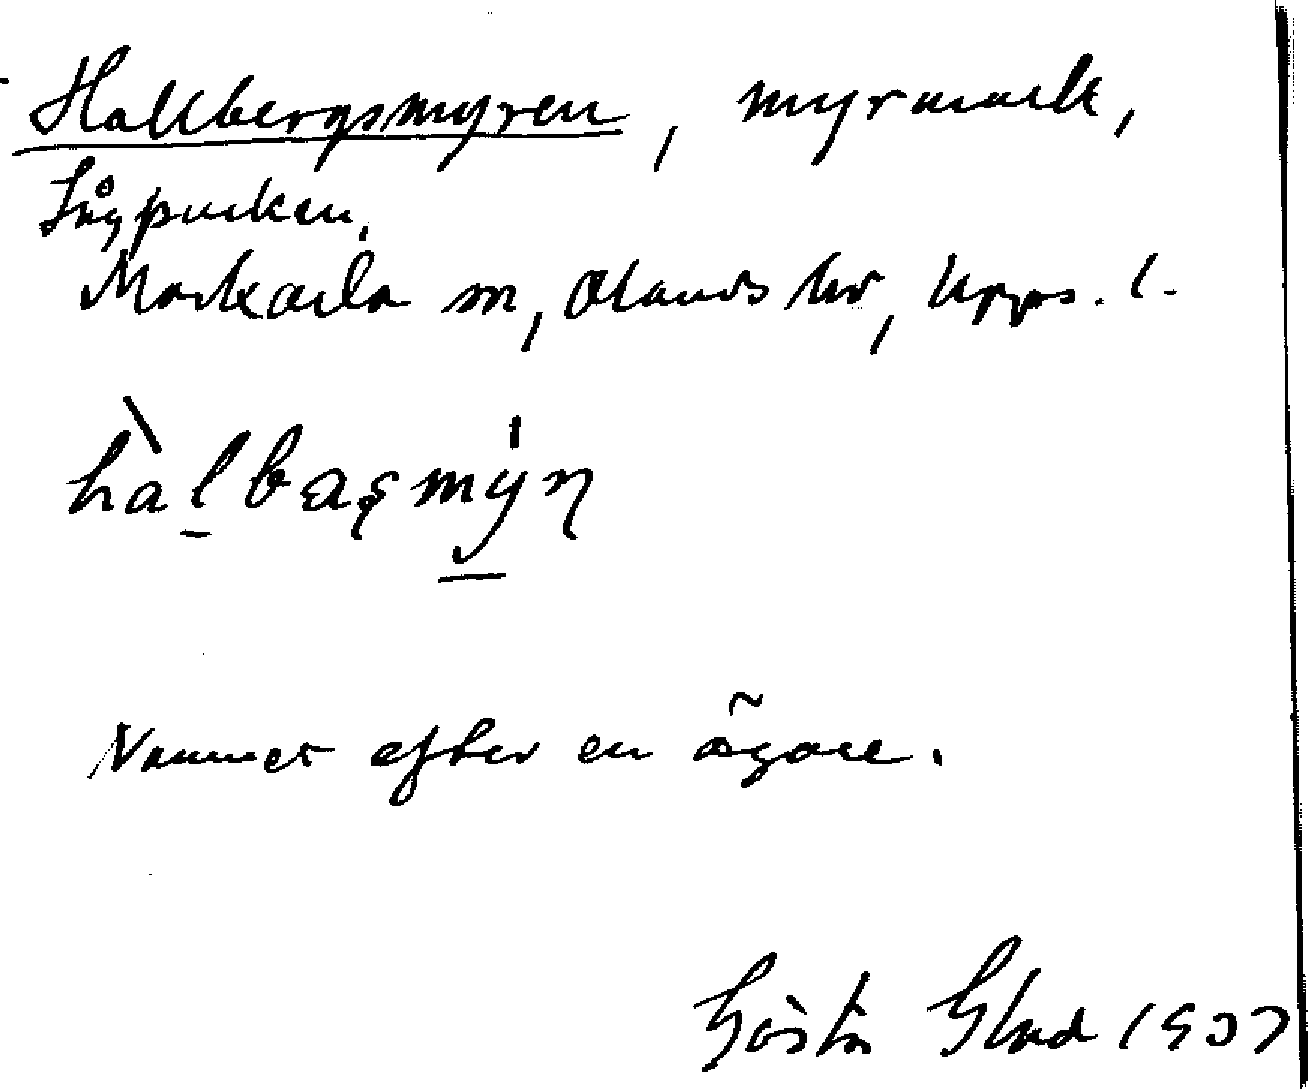 Hallbergsmyren, myrmark,
Långpunken,
Morkarla sn, Olands hd, Upps. l.
hàlbaşmýn
Namnet efter en ägare.
Gösta Blad 1937